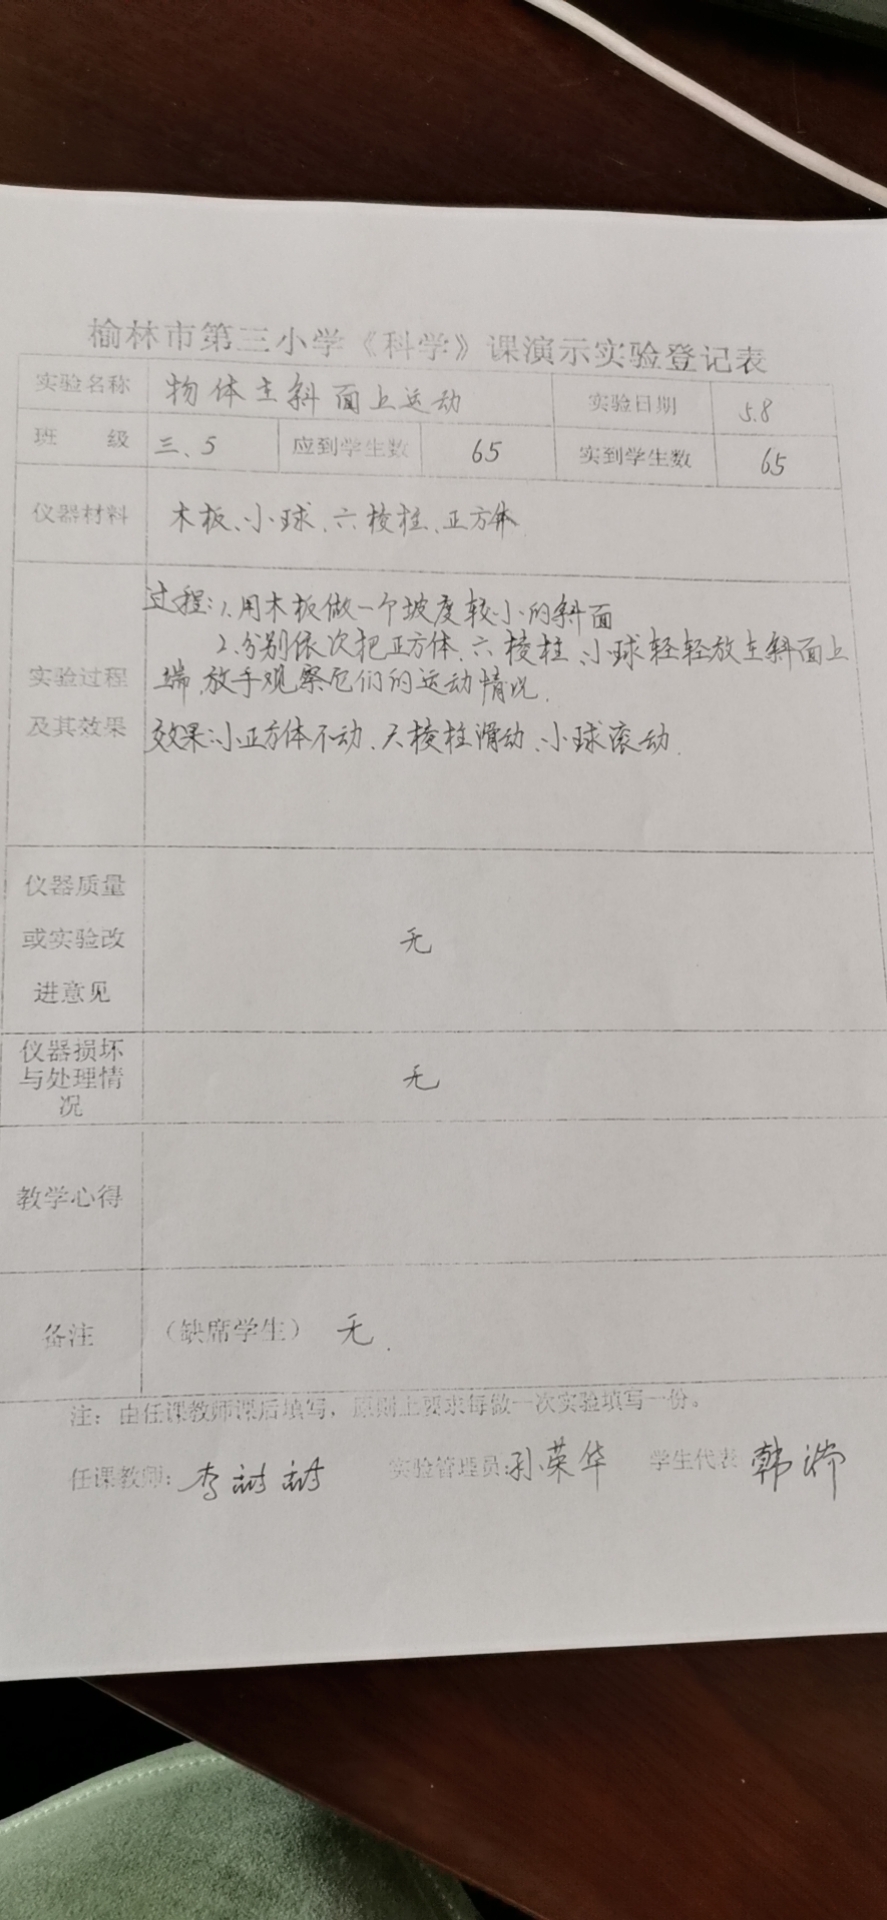 榆林市第三小学《科学》课演示实验登记表
实验名称 物体在斜面上运动 实验日期 5.8
班 级 三、5 应到学生数 65 实到学生数 65
仪器材料 木板、小球、六棱柱、正方体
过程:1.用木板做一个坡度较小的斜面
2.分别依次把正方体、六棱柱、小球轻轻放在斜面上
实验过程 端,放手观察它们的运动情况.
及其效果 效果:小正方体不动、六棱柱滑动、小球滚动.
仪器质量
或实验改 无
进意见
仪器损坏
与处理情 无
况
教学心得
备注 (缺席学生) 无.
注:由任课教师课后填写,原则上要求每做一次实验填写一份。
任课教师:李树树 实验管理员:孙荣华 学生代表 韩